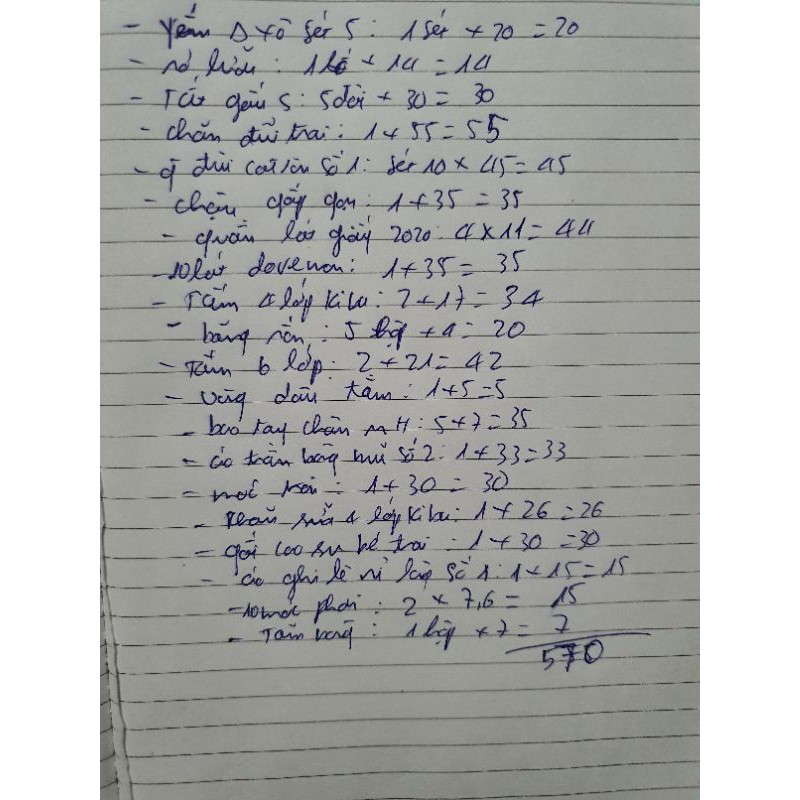 - Yếm Δ xô sét 5: 1 sét x 20 = 20
- rơ lưỡi: 1 lố x 14 = 14
- Tất gấu S: 5 đôi x 30 = 30
- chăn đũi trai: 1 x 55 = 55
- q đùi cotton số 1: sét 10 x 45 = 45
- chặn gấp gọn: 1 x 35 = 35
- quần lót giấy 2020: 4 x 11 = 44
- 10 lót: 1 x 35 = 35
- Tắm 4 lớp Kiba: 2 x 17 = 34
- băng rốn: 5 hộp x 4 = 20
- tắm 6 lớp: 2 x 21 = 42
- dầu tằm: 1 x 5 = 5
- bao tay chân MH: 5 x 7 = 35
- áo trần bông mũ số 2: 1 x 33 = 33
- 1 x 30 = 30
- khăn sữa 4 lớp Kiba: 1 x 26 = 26
- gối cao su bé trai: 1 x 30 = 30
- áo ghi lê nỉ số 1: 1 x 15 = 15
- 10 móc phơi: 2 x 7,6 = 15
- Tăm bông: 1 hộp x 7 = 7
570